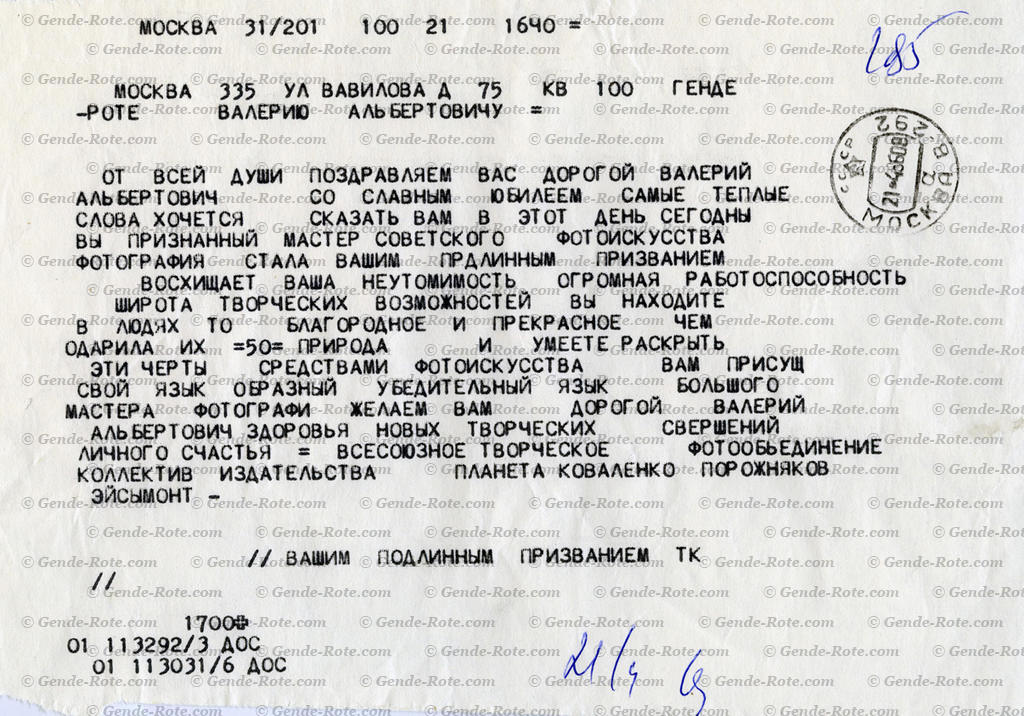 МОСКВА 31/201 100 21 1640 =
285
МОСКВА 335 УЛ ВАВИЛОВА Д 75 КВ 100 ГЕНДЕ
-РОТЕ ВАЛЕРИЮ АЛЬБЕРТОВИЧУ =
СССР
МОСКВА
ОТ ВСЕЙ ДУШИ ПОЗДРАВЛЯЕМ ВАС ДОРОГОЙ ВАЛЕРИЙ
АЛЬБЕРТОВИЧ СО СЛАВНЫМ ЮБИЛЕЕМ САМЫЕ ТЕПЛЫЕ
СЛОВА ХОЧЕТСЯ СКАЗАТЬ ВАМ В ЭТОТ ДЕНЬ СЕГОДНЫ
ВЫ ПРИЗНАННЫЙ МАСТЕР СОВЕТСКОГО ФОТОИСКУССТВА
ФОТОГРАФИЯ СТАЛА ВАШИМ ПРДЛИННЫМ ПРИЗВАНИЕМ
ВОСХИЩАЕТ ВАША НЕУТОМИМОСТЬ ОГРОМНАЯ РАБОТОСПОСОБНОСТЬ
ШИРОТА ТВОРЧЕСКИХ ВОЗМОЖНОСТЕЙ ВЫ НАХОДИТЕ
В ЛЮДЯХ ТО БЛАГОРОДНОЕ И ПРЕКРАСНОЕ ЧЕМ
ОДАРИЛА ИХ =50= ПРИРОДА И УМЕЕТЕ РАСКРЫТЬ
ЭТИ ЧЕРТЫ СРЕДСТВАМИ ФОТОИСКУССТВА ВАМ ПРИСУЩ
СВОЙ ЯЗЫК ОБРАЗНЫЙ УБЕДИТЕЛЬНЫЙ ЯЗЫК БОЛЬШОГО
МАСТЕРА ФОТОГРАФИ ЖЕЛАЕМ ВАМ ДОРОГОЙ ВАЛЕРИЙ
АЛЬБЕРТОВИЧ ЗДОРОВЬЯ НОВЫХ ТВОРЧЕСКИХ СВЕРШЕНИЙ
ЛИЧНОГО СЧАСТЬЯ = ВСЕСОЮЗНОЕ ТВОРЧЕСКОЕ ФОТООБЪЕДИНЕНИЕ
КОЛЛЕКТИВ ИЗДАТЕЛЬСТВА ПЛАНЕТА КОВАЛЕНКО ПОРОЖНЯКОВ
ЭЙСЫМОНТ -
// ВАШИМ ПОДЛИННЫМ ПРИЗВАНИЕМ ТК
//
1700
01 113292/3 ДОС
01 113031/6 ДОС
21/4
© Gende-Rote.com